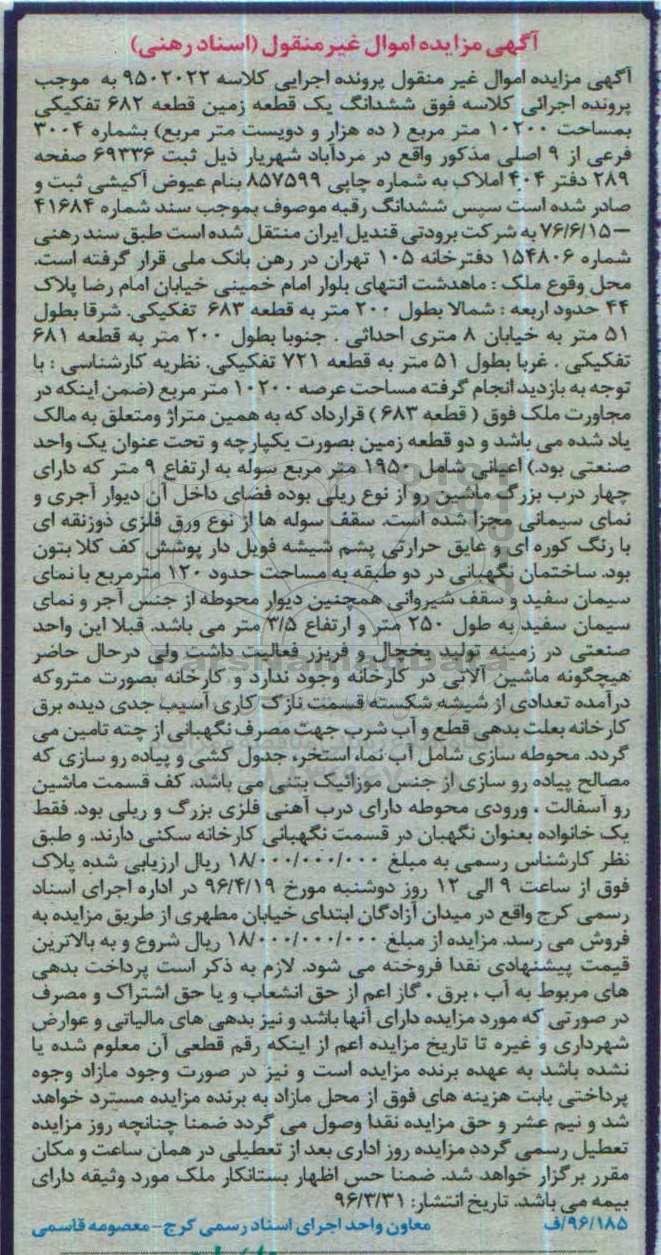 آگهی مزایده اموال غیر منقول (اسناد رهنی)
آگهی مزایده اموال غیر منقول پرونده اجرایی کلاسه ۹۵۰۲۰۲۲ به موجب
پرونده اجرائی کلاسه فوق ششدانگ یک قطعه زمین قطعه ۶۸۲ تفکیکی
بمساحت ۱۰۲۰۰ متر مربع ( ده هزار و دویست متر مربع) بشماره ۳۰۰۴
فرعی از ۹ اصلی مذکور واقع در مردآباد شهریار ذیل ثبت ۶۹۳۳۶ صفحه
۲۸۹ دفتر ۴۰۴ املاک به شماره چاپی ۸۵۷۵۹۹ بنام عیوض آکیشی ثبت و
صادر شده است سپس ششدانگ رقبه موصوف بموجب سند شماره ۴۱۶۸۴
–۷۶/۶/۱۵ به شرکت برودتی قندیل ایران منتقل شده است طبق سند رهنی
شماره ۱۵۴۸۰۶ دفترخانه ۱۰۵ تهران در رهن بانک ملی قرار گرفته است.
محل وقوع ملک : ماهدشت انتهای بلوار امام خمینی خیابان امام رضا پلاک
۴۴ حدود اربعه : شمالا بطول ۲۰۰ متر به قطعه ۶۸۳ تفکیکی. شرقا بطول
۵۱ متر به خیابان ۸ متری احداثی . جنوبا بطول ۲۰۰ متر به قطعه ۶۸۱
تفکیکی . غربا بطول ۵۱ متر به قطعه ۷۲۱ تفکیکی. نظریه کارشناسی : با
توجه به بازدید انجام گرفته مساحت عرصه ۱۰۲۰۰ متر مربع (ضمن اینکه در
مجاورت ملک فوق ( قطعه ۶۸۳ ) قرارداد که به همین متراژ ومتعلق به مالک
یاد شده می باشد و دو قطعه زمین بصورت یکپارچه و تحت عنوان یک واحد
صنعتی بود.) اعیانی شامل ۱۹۵۰ متر مربع سوله به ارتفاع ۹ متر که دارای
چهار درب بزرگ ماشین رو از نوع ریلی بوده فضای داخل آن دیوار آجری و
نمای سیمانی مجزا شده است. سقف سوله ها از نوع ورق فلزی ذوزنقه ای
با رنگ کوره ای و عایق حرارتی پشم شیشه فویل دار پوشش کف کلا بتون
بود. ساختمان نگهبانی در دو طبقه به مساحت حدود ۱۲۰ مترمربع با نمای
سیمان سفید و سقف شیروانی همچنین دیوار محوطه از جنس آجر و نمای
سیمان سفید به طول ۲۵۰ متر و ارتفاع ۳/۵ متر می باشد. قبلا این واحد
صنعتی در زمینه تولید یخچال و فریزر فعالیت داشت ولی درحال حاضر
هیچگونه ماشین آلاتی در کارخانه وجود ندارد و کارخانه بصورت متروکه
درآمده تعدادی از شیشه شکسته قسمت نازک کاری آسیب جدی دیده برق
کارخانه بعلت بدهی قطع و آب شرب جهت مصرف نگهبانی از چته تامین می
گردد. محوطه سازی شامل آب نما، استخر، جدول کشی و پیاده رو سازی که
مصالح پیاده رو سازی از جنس موزائیک بتنی می باشد. کف قسمت ماشین
رو آسفالت ، ورودی محوطه دارای درب آهنی فلزی بزرگ و ریلی بود. فقط
یک خانواده بعنوان نگهبان در قسمت نگهبانی کارخانه سکنی دارند. و طبق
نظر کارشناس رسمی به مبلغ ۱۸/۰۰۰/۰۰۰/۰۰۰ ریال ارزیابی شده پلاک
فوق از ساعت ۹ الی ۱۲ روز دوشنبه مورخ ۹۶/۴/۱۹ در اداره اجرای اسناد
رسمی کرج واقع در میدان آزادگان ابتدای خیابان مطهری از طریق مزایده به
فروش می رسد. مزایده از مبلغ ۱۸/۰۰۰/۰۰۰/۰۰۰ ریال شروع و به بالاترین
قیمت پیشنهادی نقدا فروخته می شود. لازم به ذکر است پرداخت بدهی
های مربوط به آب ، برق ، گاز اعم از حق انشعاب و یا حق اشتراک و مصرف
در صورتی که مورد مزایده دارای آنها باشد و نیز بدهی های مالیاتی و عوارض
شهرداری و غیره تا تاریخ مزایده اعم از اینکه رقم قطعی آن معلوم شده یا
نشده باشد به عهده برنده مزایده است و نیز در صورت وجود مازاد وجوه
پرداختی بابت هزینه های فوق از محل مازاد به برنده مزایده مسترد خواهد
شد و نیم عشر و حق مزایده نقدا وصول می گردد ضمنا چنانچه روز مزایده
تعطیل رسمی گردد مزایده روز اداری بعد از تعطیلی در همان ساعت و مکان
مقرر برگزار خواهد شد. ضمنا حس اظهار بستانکار ملک مورد وثیقه دارای
بیمه می باشد. تاریخ انتشار: ۹۶/۳/۳۱
۹۶/۱۸۵/ف معاون واحد اجرای اسناد رسمی کرج-معصومه قاسمی